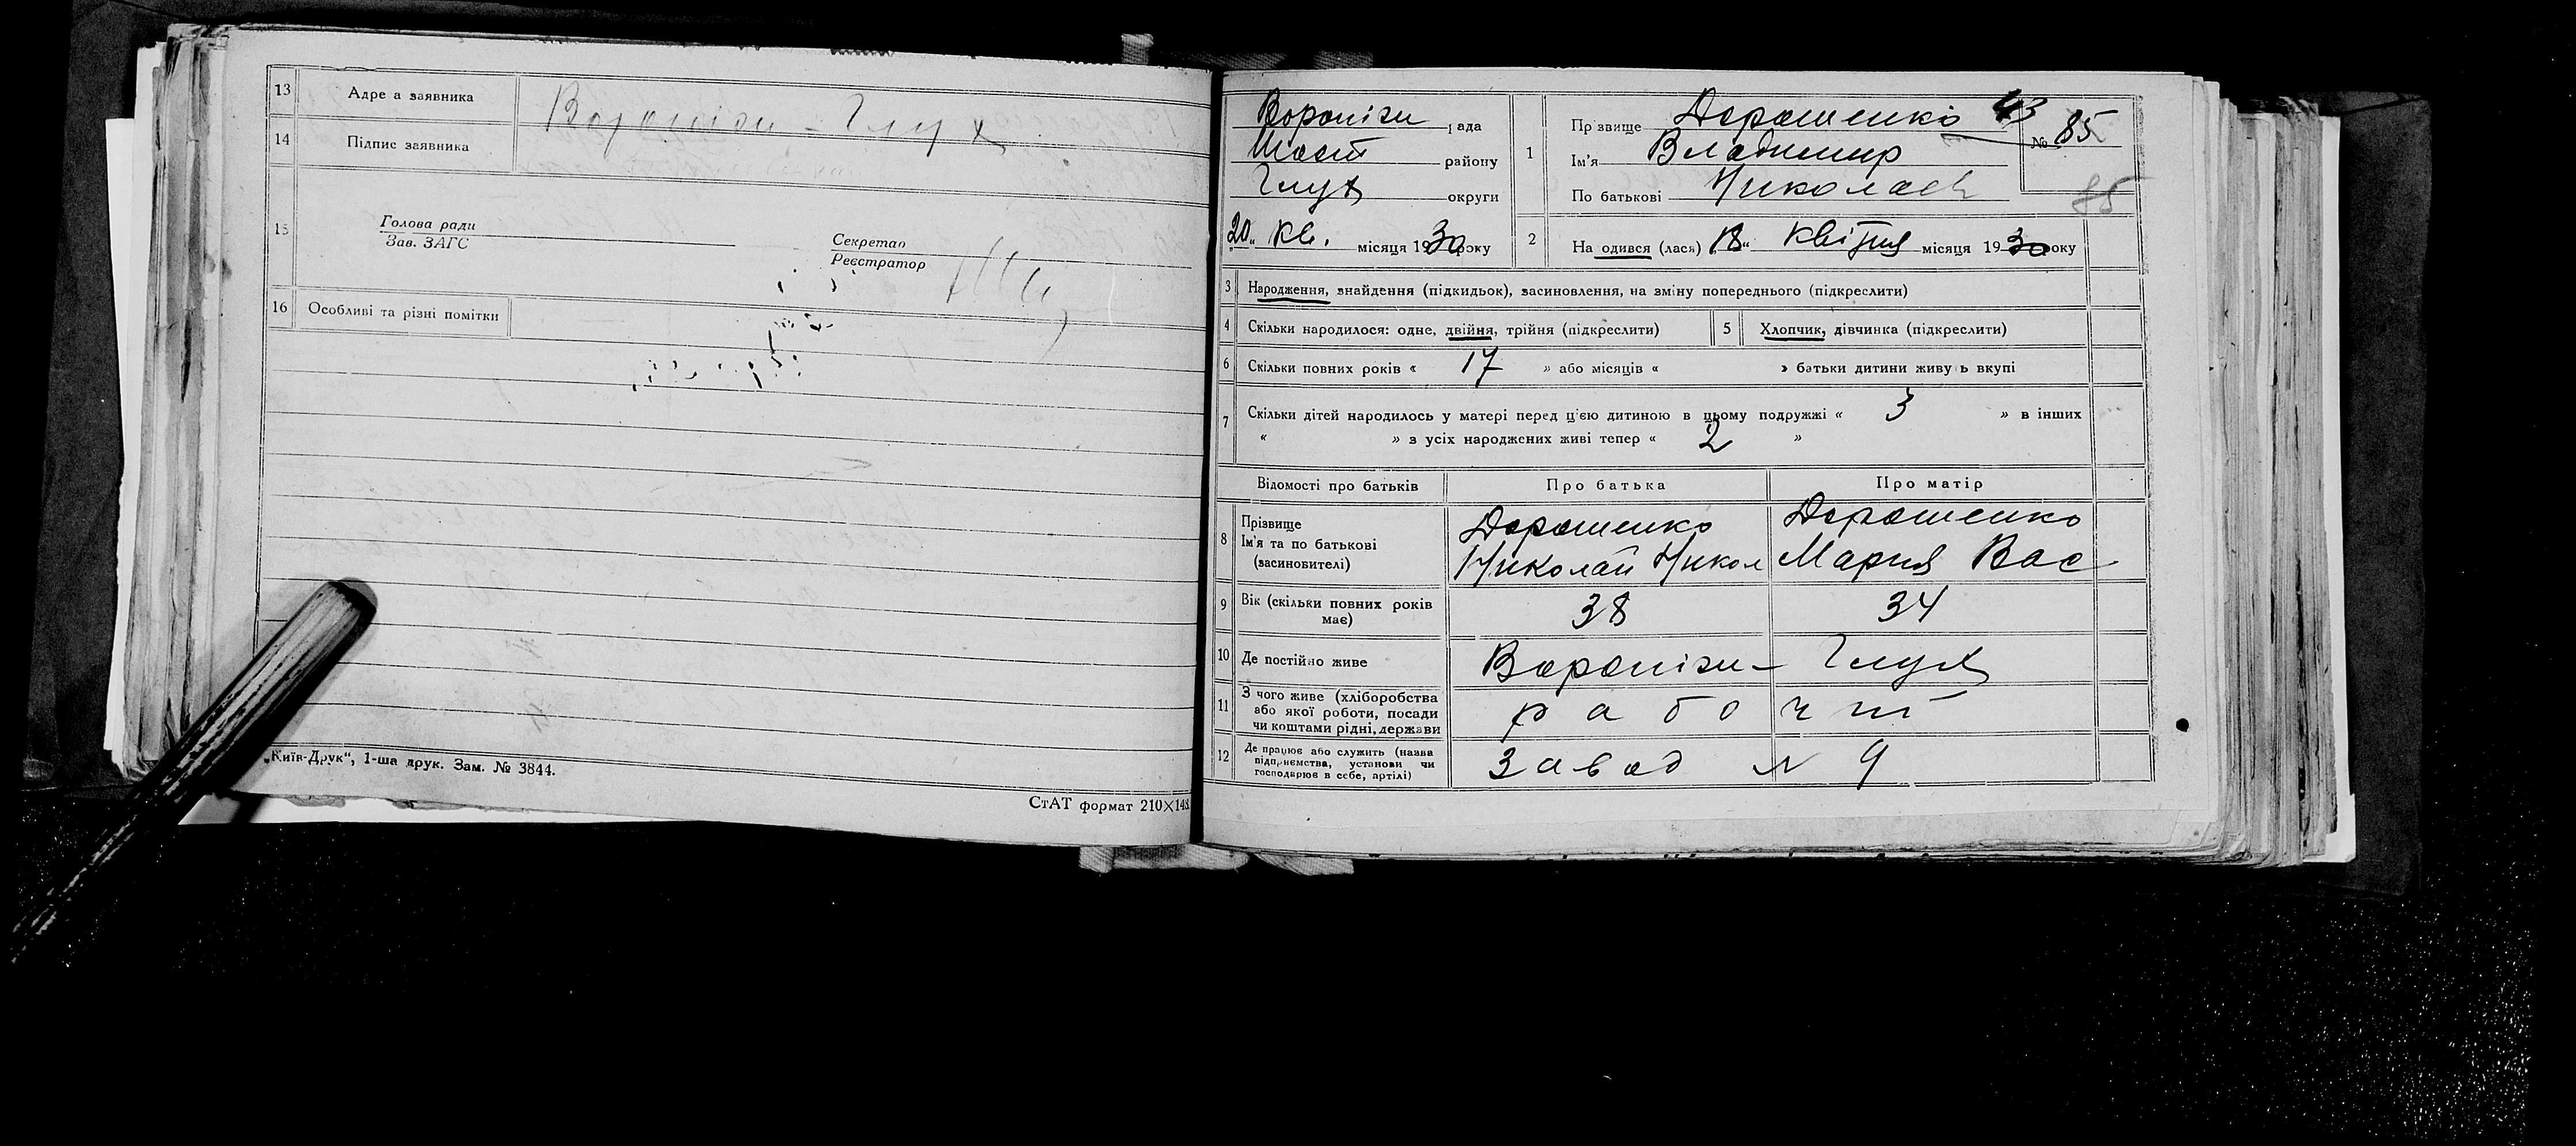 13 Адре а заявника Вороніжи - Глух
14 Підпис заявника
15 Голова ради
Зав. ЗАГС
Секретар
Реєстратор
16 Особливі та різні помітки
„Київ-Друк“, 1-ша друк. Зам. № 3844.
СтАТ формат 210×148
Вороніжи рада
Шост району
Глух округи
20 „ Кв. місяця 1930 року
1 Пр звище Дорошенко 43
№ 85
Ім'я Владимир
По батькові Николаев
85
2 На одився (лася) 18 „ квітня місяця 1930 оку
3 Народження, знайдення (підкидьок), засиновлення, на зміну попереднього (підкреслити)
4 Скільки народилося: одне, двійня, трійня (підкреслити) 5 Хлопчик, дівчинка (підкреслити)
6 Скільки повних років « 17 » або місяців « » батьки дитини живу ь вкупі
7 Скільки дітей народилось у матері перед ц'єю дитиною в цьому подружжі « 3 » в інших
« » з усіх народжених живі тепер « 2 »
Відомості про батьків Про батька Про матір
8 Прізвище
Ім'я та по батькові
(засинобителі)
Дорошенко
Николай Никол
Дорошенко
Мария Вас
9 Вік (скільки повних років
має)
38 34
10 Де постійно живе Вороніжи - Глух
11 З чого живе (хліборобства
або якої роботи, посади
чи коштами рідні, держави
12 Де працює або служить (назва
підприємства, установи чи
господарює в себе, артілі)
Завод № 9